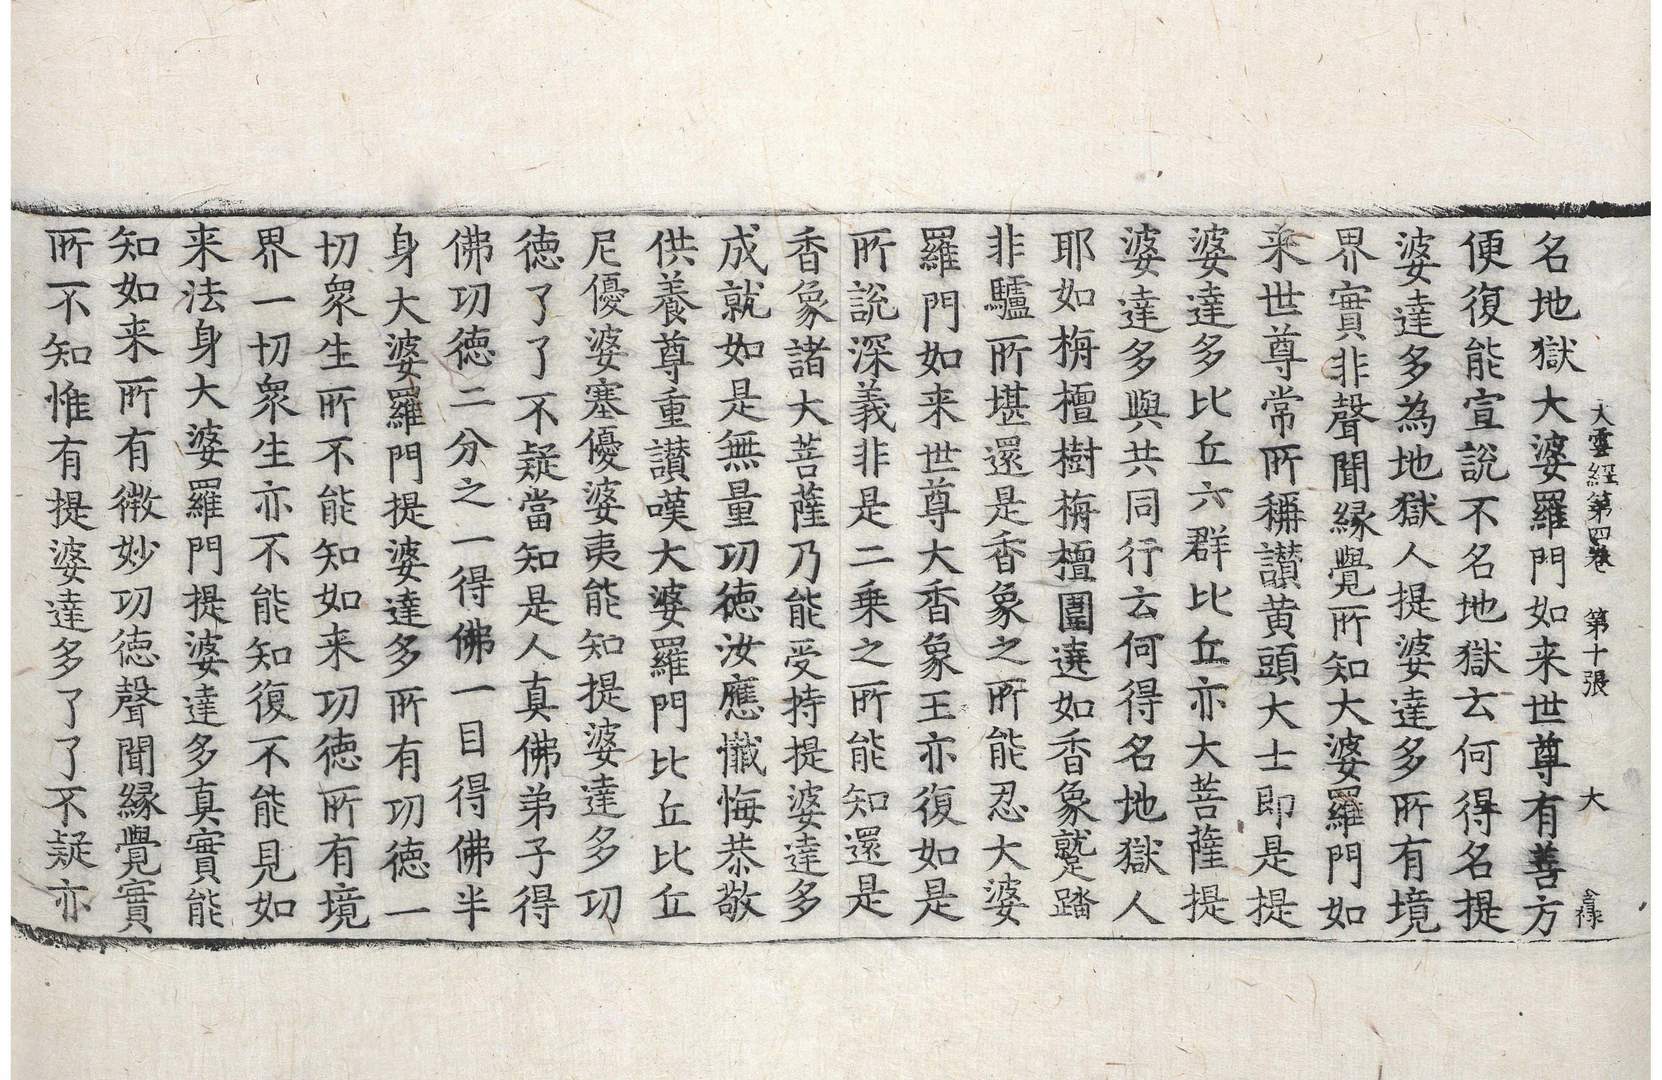 大雲経第四卷 第十張 大 僉祿
名地獄大婆羅門如来世尊有善方
便復能宣說不名地獄云何得名提
婆達多為地獄人提婆達多所有境
界實非聲聞緣覺所知大婆羅門如
来世尊常所稱讃黄頭大士即是提
婆達多比丘六群比丘亦大菩薩提
婆達多與共同行云何得名地獄人
耶如栴檀樹栴檀圍遶如香象蹴踏
非驢所堪還是香象之所能忍大婆
羅門如来世尊大香象王亦復如是
所說深義非是二乗之所能知還是
香象諸大菩薩乃能受持提婆達多
成就如是無量功徳汝應懺悔恭敬
供養尊重讃嘆大婆羅門比丘比丘
尼優婆塞優婆夷能知提婆達多功
徳了了不疑當知是人真佛弟子得
佛功徳二分之一得佛一目得佛半
身大婆羅門提婆達多所有功徳一
切衆生所不能知如来功徳所有境
界一切衆生亦不能知復不能見如
来法身大婆羅門提婆達多真實能
知如来所有微妙功徳聲聞緣覺實
所不知惟有提婆達多了了不疑亦